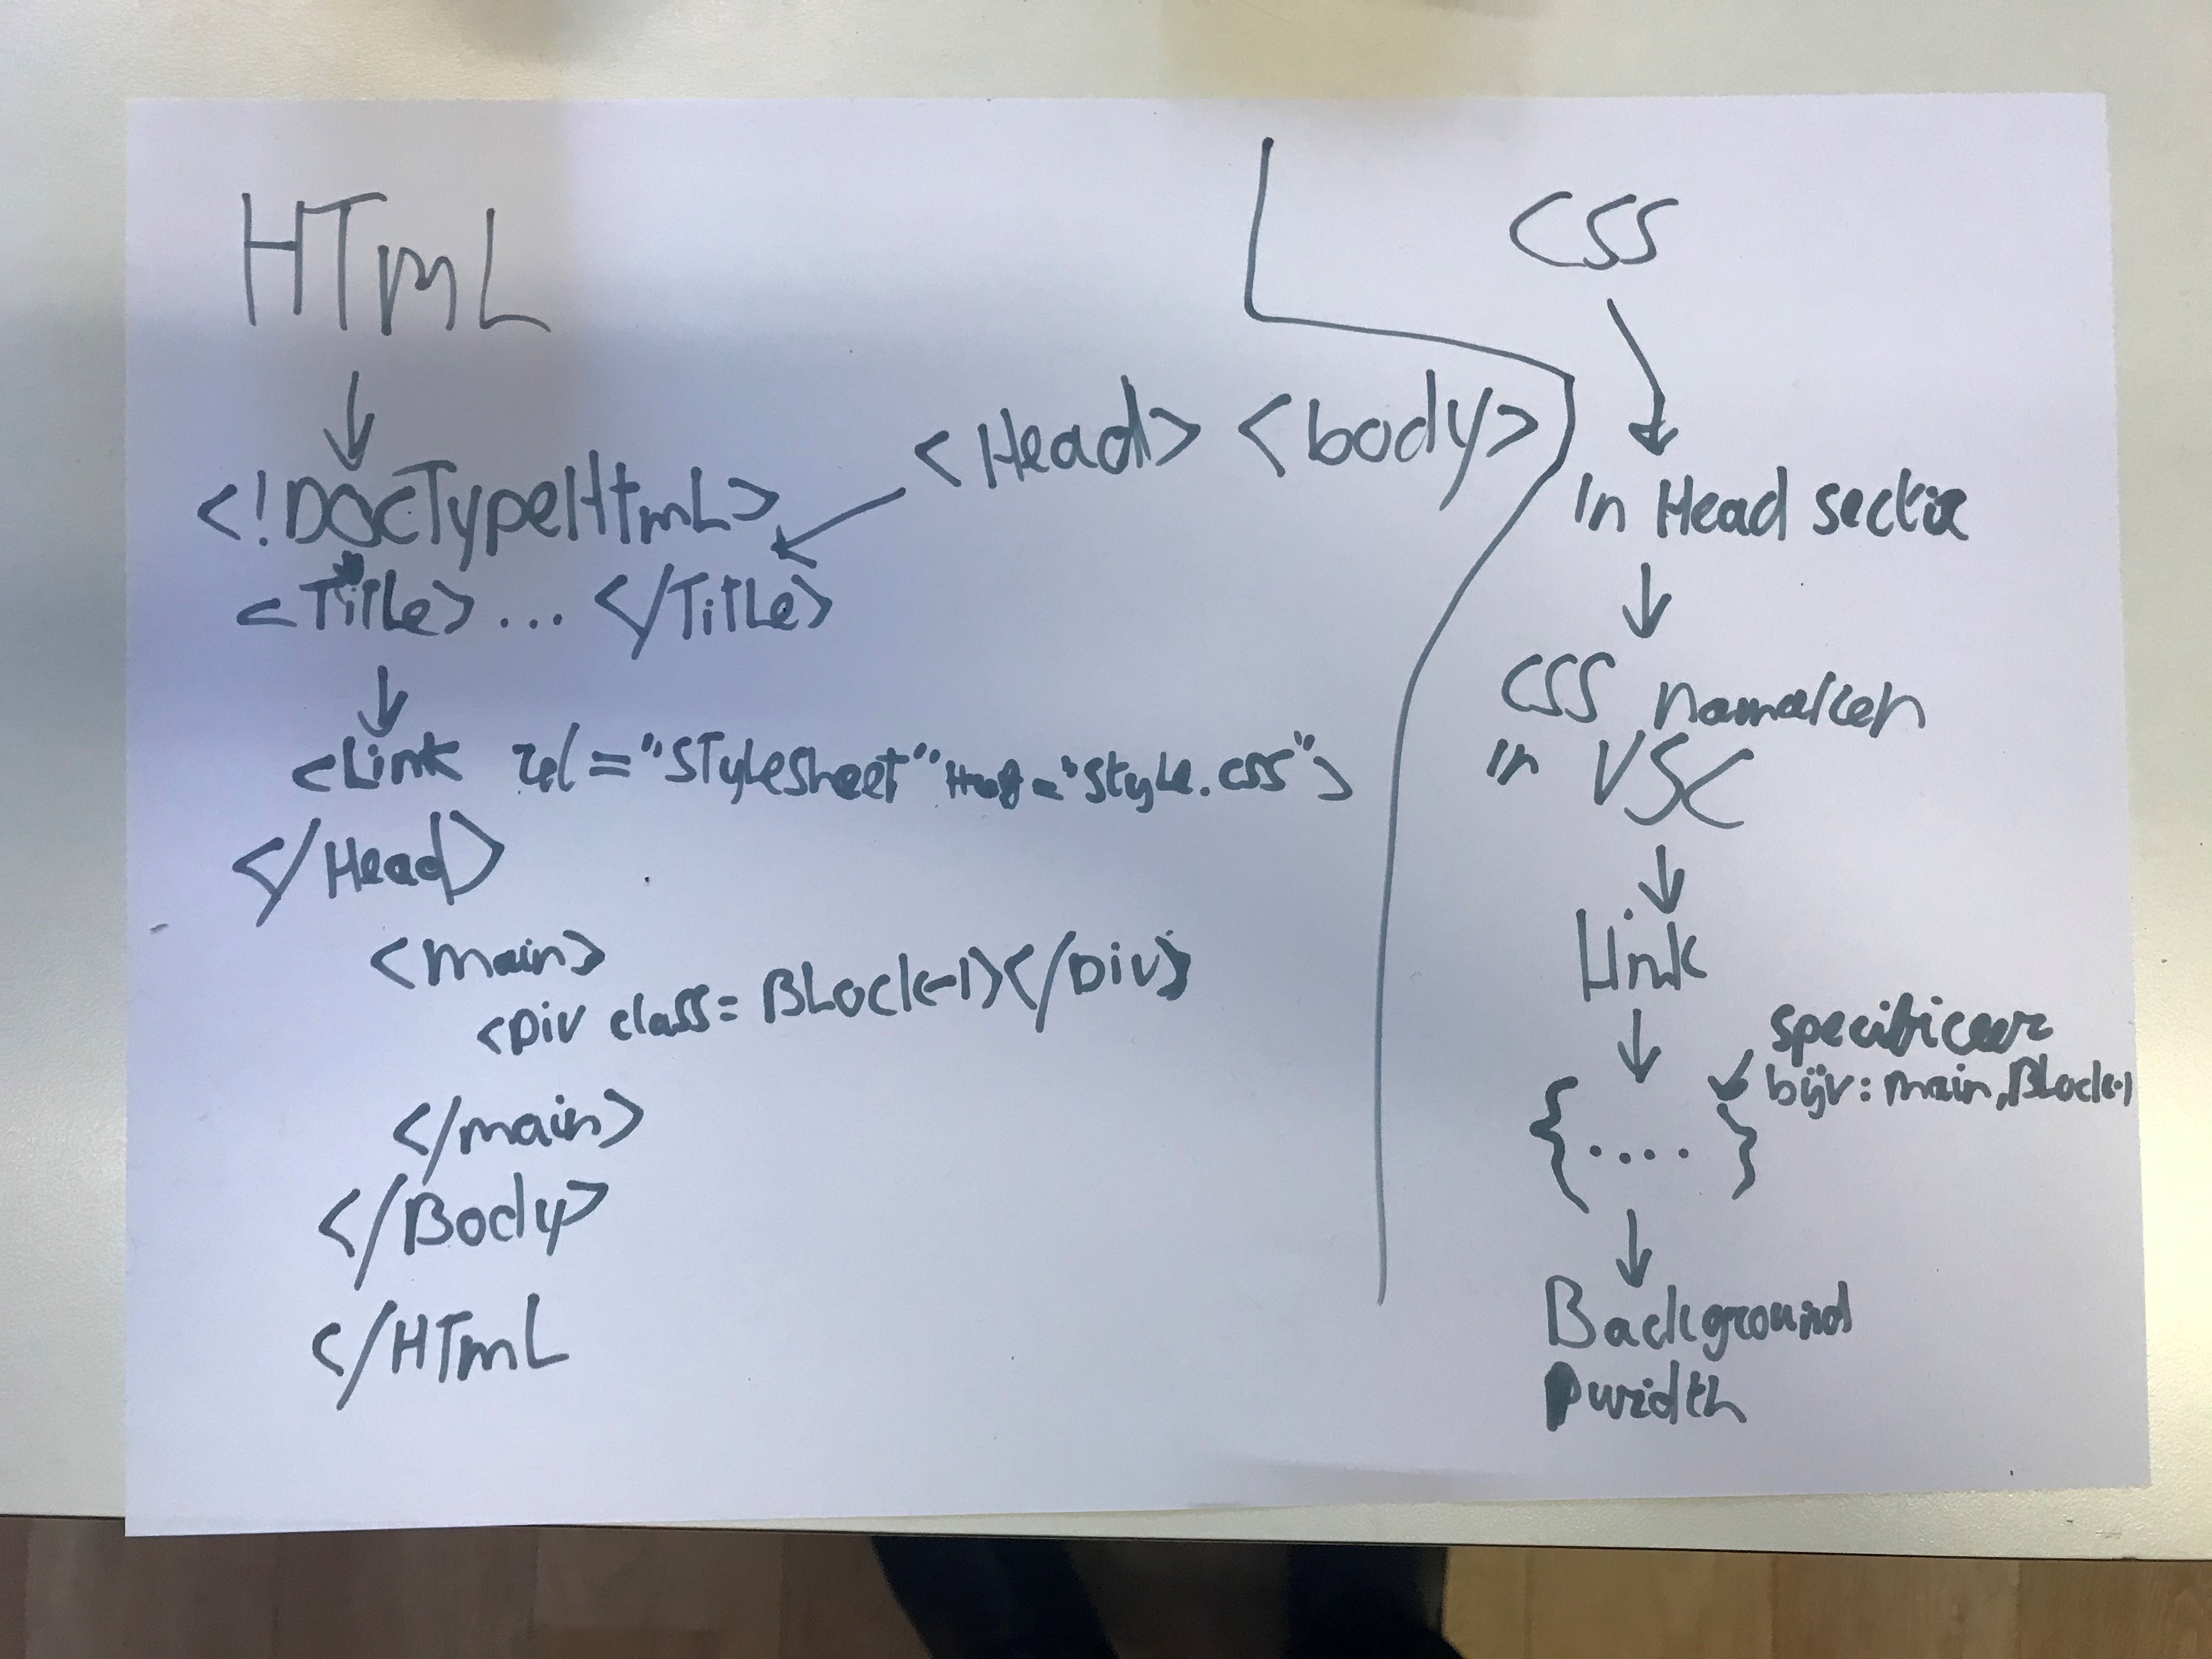 HTmL
↓
<Head> <body>
<!DOCTypeHtmL>
<Title> ... </TiTLe>
↓
<Link rel="STyleSheet" Href="Style.css">
</Head>
<main>
<Div class=BLock-1></Div>
</main>
</Body>
</HTmL
CSS
↓
In Head sectie
↓
CSS namaken
in VSC
↓
Link
↓
specificeer
bijv: main, BLock-1
{....}
↓
Background
width